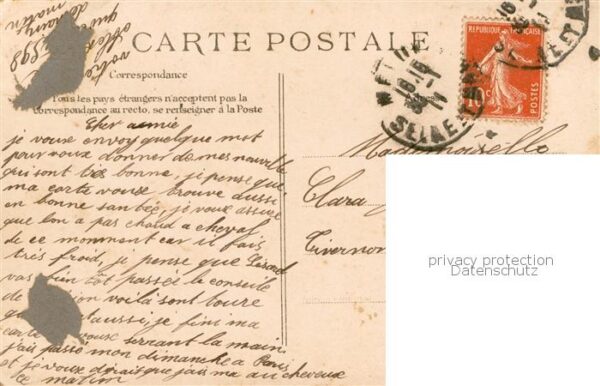 CARTE POSTALE
Correspondance
Tous les pays étrangers n'acceptent pas la
correspondance au recto, se renseigner à la Poste
Cher amie
je vous envoy quelque mot
pour vous donner de mes nouvelle
qui sont très bonne, je pense que
ma carte vous trouve aussi
en bonne santée, je vous assure
que lon a pas chaud a cheval
de ce monment car il fais
très froid, je pense que
vas bien tôt passée le conseile
de voilà sont toure
aussi, je fini ma
carte vous serrant la main.
j'ais passé mon dimanche a Paris
et je vous dirais que jais ma au cheveux
ce matin
votre
REPUBLIQUE FRANÇAISE
10c
POSTES
SEINE
Mademoiselle
Clara
Tivernon
privacy protection
Datenschutz